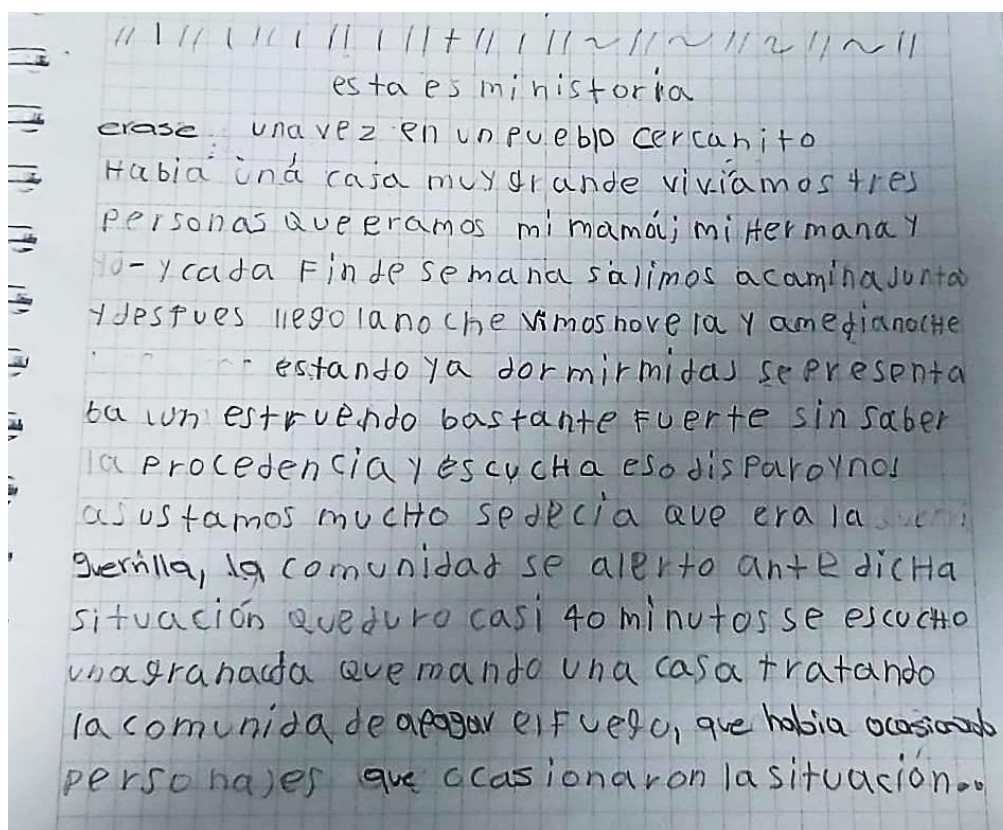 esta es mi nistoria
erase una vez en un pueblo cercanito
Habia una casa muy grande viviamos tres
personas que eramos mi mamá; mi Hermana y
yo - y cada Fin de semana salimos a camina Junta
y despues llego la noche vimos novela y a media noCHe
estando ya dormirmidas se presenta
ba un estruendo bastante Fuerte sin saber
la procedencia y escucHa eso disparo y nos
asustamos mucHo se decia que era la
guerrilla, la comunidad se alerto ante dicHa
situación que duro casi 40 minutos se escucHo
una granada quemando una casa tratando
la comunida de apagar el Fuego, que habia ocasionado
personajes que ocasionaron la situación..